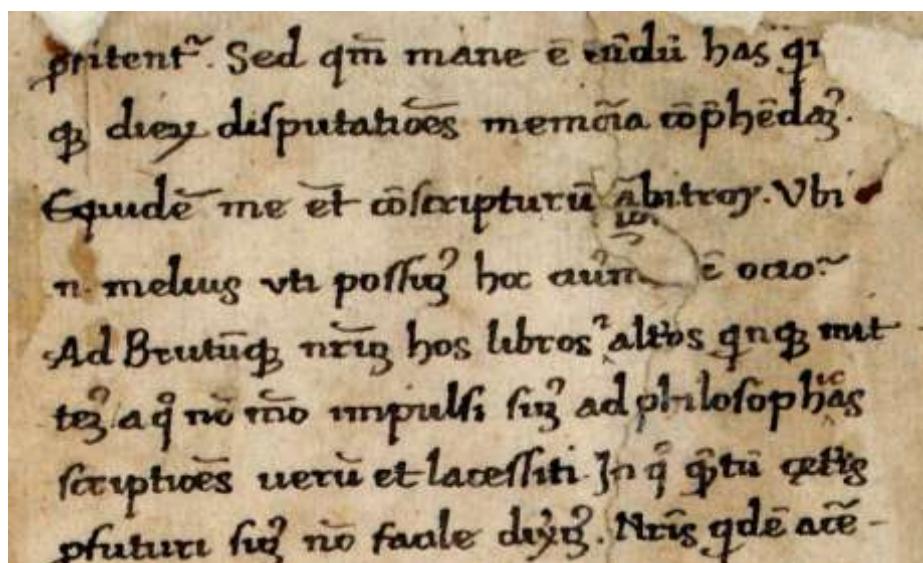 ꝑtitent᷑. Sed qm̄ mane ē eūdū has qi
qꝫ dieꝝ disputatiōēs memōīa cōp̄hēdaꝫ᾽.
Equidē me et̄ cōscripturū arbitroꝛ. Vbi
n. melius vti possuꝫ᾽ hoc ē ocio.
Ad Brutūqꝫ nr̄uꝫ hos libros alt̄os qnqꝫ mit
teꝫ᾽ a qͦ nō m̄o impulsi suꝫ᾽ ad philosophias
scriptiōēs uerū et lacessiti. In qͦ qᷓtū cet̄is
ꝓfuturi siꝫ᾽ nō facile dixꝫ᾽. Nr̄is qdē acē-